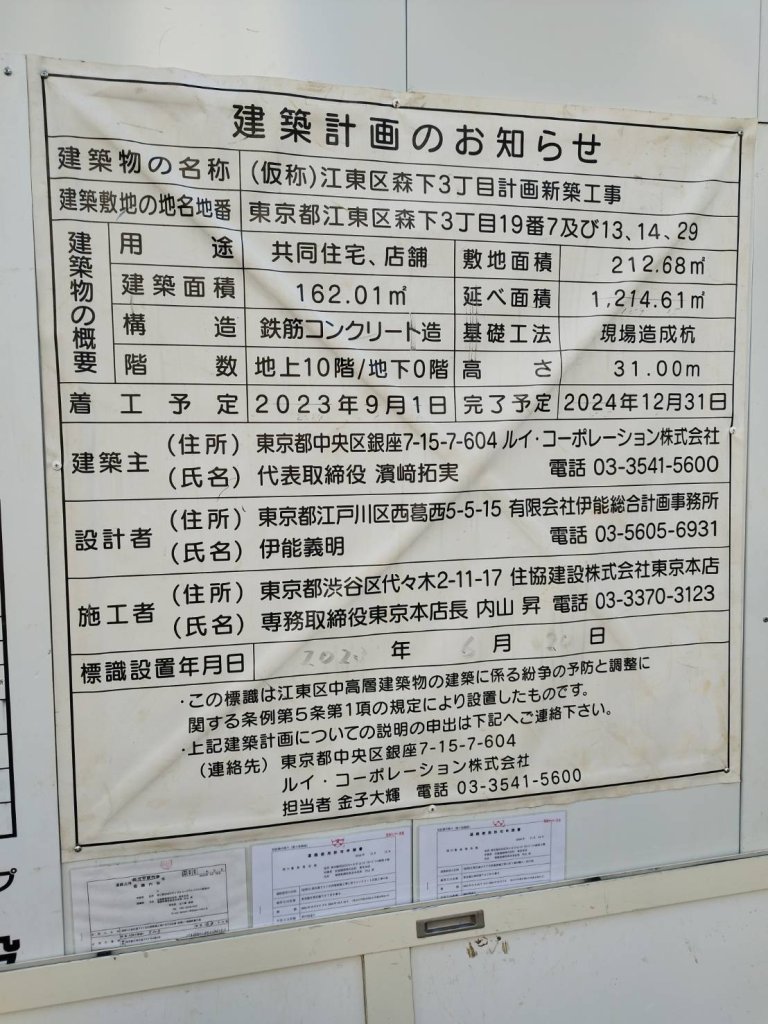 建築計画のお知らせ
建築物の名称 (仮称)江東区森下3丁目計画新築工事
建築敷地の地名地番 東京都江東区森下3丁目19番7及び13、14、29
建築物の概要
用途 共同住宅、店舗 敷地面積 212.68㎡
建築面積 162.01㎡ 延べ面積 1,214.61㎡
構造 鉄筋コンクリート造 基礎工法 現場造成杭
階数 地上10階/地下0階 高さ 31.00m
着工予定 2023年9月1日 完了予定 2024年12月31日
建築主 (住所) 東京都中央区銀座7-15-7-604 ルイ・コーポレーション株式会社
(氏名) 代表取締役 濱﨑拓実 電話 03-3541-5600
設計者 (住所) 東京都江戸川区西葛西5-5-15 有限会社伊能総合計画事務所
(氏名) 伊能義明 電話 03-5605-6931
施工者 (住所) 東京都渋谷区代々木2-11-17 住協建設株式会社東京本店
(氏名) 専務取締役東京本店長 内山 昇 電話 03-3370-3123
標識設置年月日 年 月 日
・この標識は江東区中高層建築物の建築に係る紛争の予防と調整に
関する条例第5条第1項の規定により設置したものです。
・上記建築計画についての説明の申出は下記へご連絡下さい。
(連絡先) 東京都中央区銀座7-15-7-604
ルイ・コーポレーション株式会社
担当者 金子大輝 電話 03-3541-5600